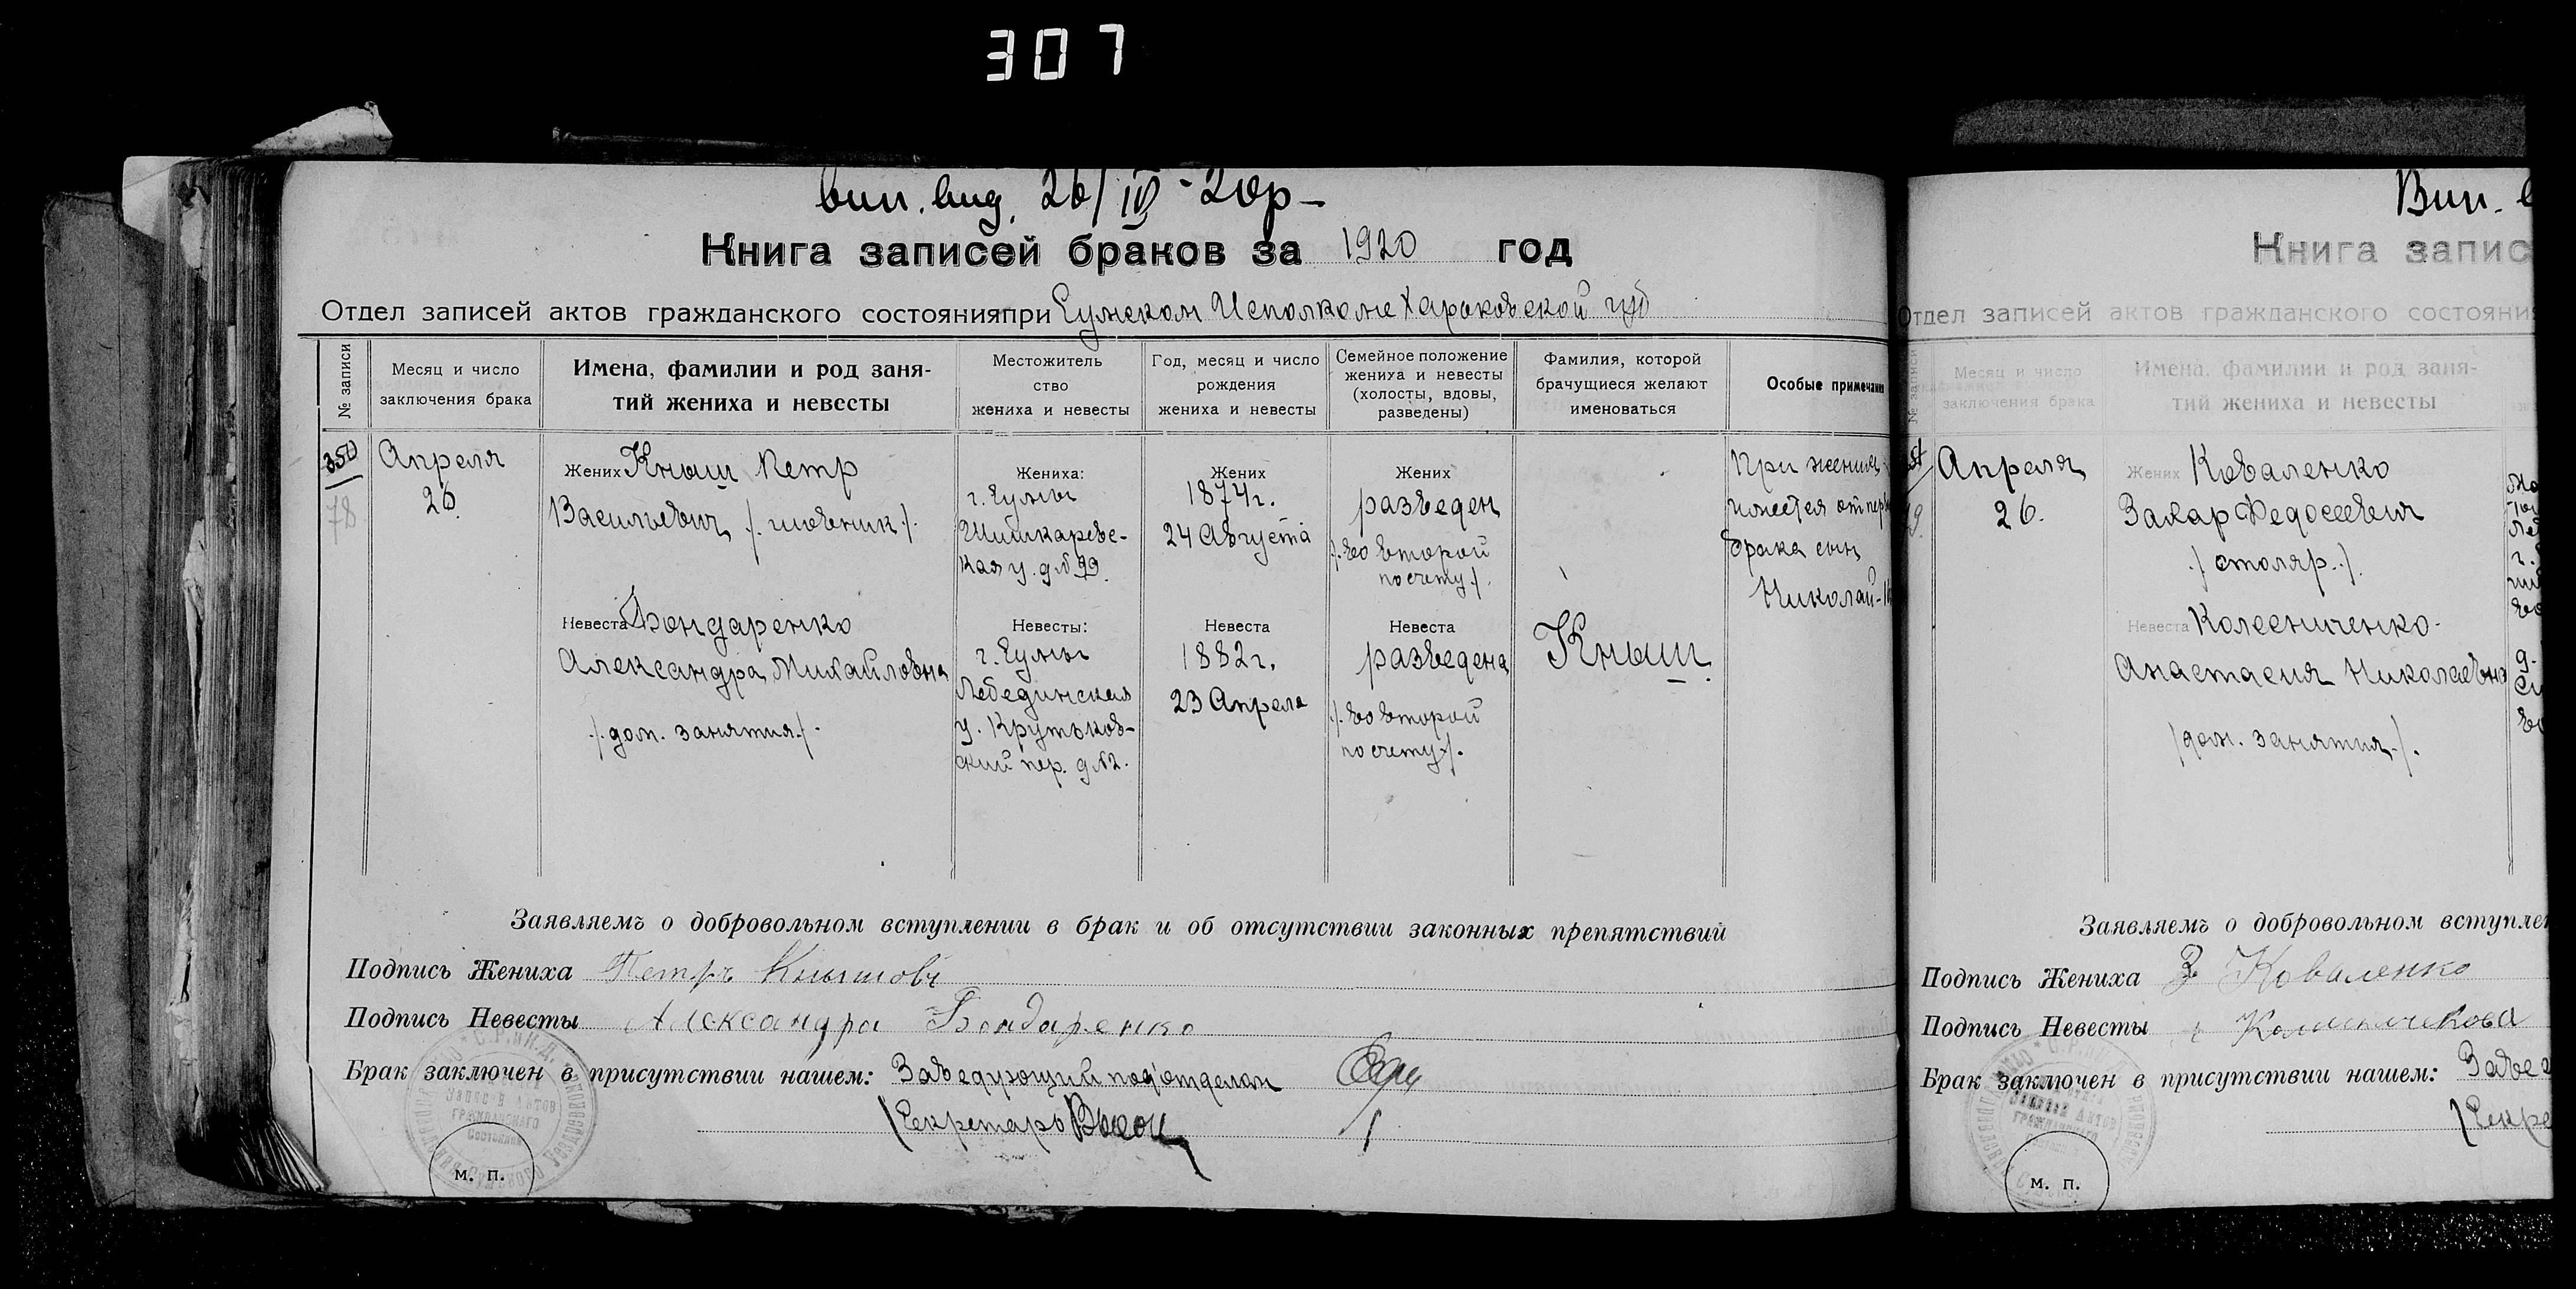 307
вип. вид. 26/IV - 20р -
Книга записей браков за 1920 год
Отдел записей актов гражданского состояния при Сумском Исполкоме Харьковской губ
№ записи
Месяц и число
заключения брака
Имена, фамилии и род заня-
тий жениха и невесты
Местожитель
ство
жениха и невесты
Год, месяц и число
рождения
жениха и невесты
Семейное положение
жениха и невесты
(холосты, вдовы,
разведены)
Фамилия, которой
брачущиеся желают
именоваться
Особые примечани
350
78
Апреля
26
Жених Кныш Петр
Васильевич
Жениха:
г. Сумы
Шишкаревс-
кая у. д№ 99.
Жених
1874 г.
24 Августа
Жених
разведен
/. во второй
по счету /.
При жених
имеется от пер
брака сын
Николай-
Невеста Бондаренко
Александра Михайловна
/. дом. занятия /.
Невесты:
г. Сумы
Лебединская
у. Крутьков-
ский пер. д№2.
Невеста
1882 г.
23 Апреля
Невеста
разведена
/. во второй
по счету /.
Кныш
Заявляемъ о добровольном вступлении в брак и об отсутствии законных препятствий
Подпись Жениха Петръ Кнышовъ
Подпись Невесты Александра Бондаренко
Брак заключен в присутствии нашем: Заведующий подотделом
Секретарь
м. п.
Вип. в
Книга запис
Отдел записей актов гражданского состояни
№ записи
Месяц и число
заключения брака
Имена, фамилии и род заня-
тий жениха и невесты
Апреля
26.
Жених Коваленко
Захар Федосеевич
/ столяр. /.
Невеста Колесниченко
Анастасия Николаевна
/ дом. занятия /.
Заявляемъ о добровольном вступлен
Подпись Жениха З Коваленко
Подпись Невесты
Брак заключен в присутствии нашем: Завед
Секре
м. п.